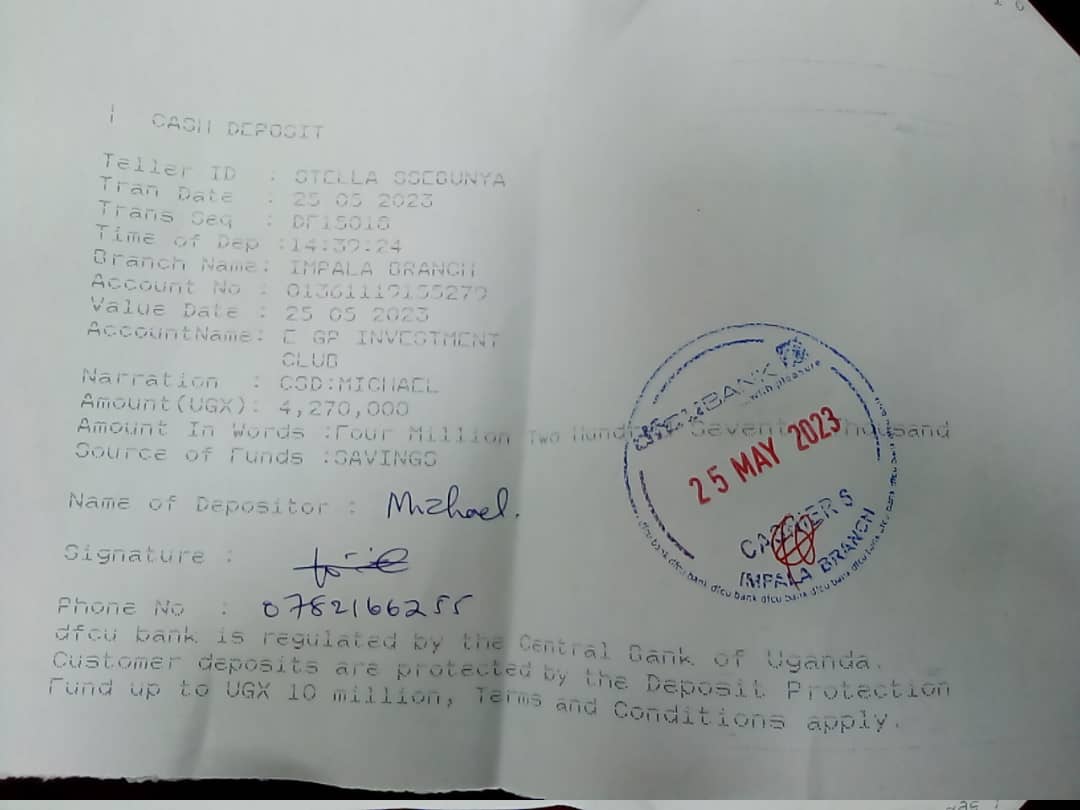 CASH DEPOSIT
Teller ID : STELLA SSEGUNYA
Tran Date : 25 05 2023
Trans Seq : DF15018
Time of Dep :14:39:24
Branch Name: IMPALA BRANCH
Account No : 01361119155279
Value Date : 25 05 2023
AccountName: E GP INVESTMENT
CLUB
Narration : CSD:MICHAEL
Amount(UGX): 4,270,000
Amount In Words :Four Million Two Hundred Seventy Thousand
Source of Funds :SAVINGS
Name of Depositor : Michael.
Signature :
Phone No : 0782166255
dfcu bank is regulated by the Central Bank of Uganda.
Customer deposits are protected by the Deposit Protection
Fund up to UGX 10 million, Terms and Conditions apply.
dfcu BANK
with pleasure
25 MAY 2023
CASHIER 5
IMPALA BRANCH
dfcu bank dfcu bank dfcu bank dfcu bank dfcu bank dfcu bank